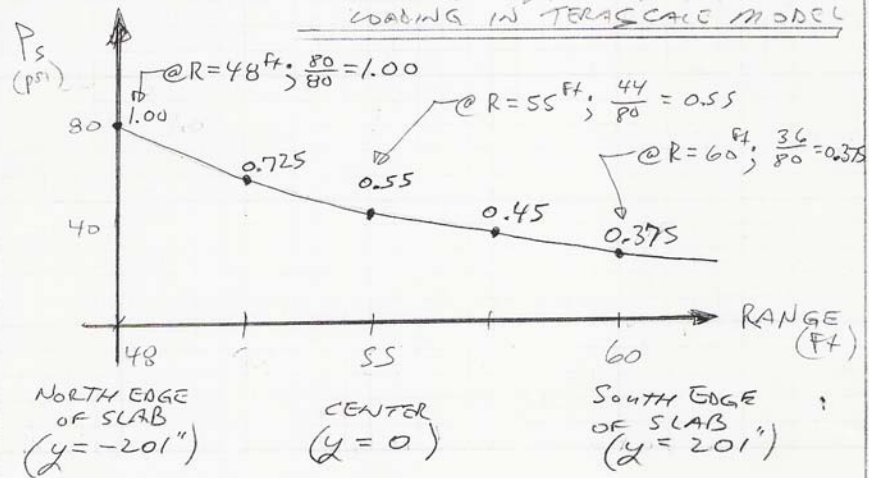 LOADING IN TERASCALE MODEL
Ps
(psi)
@ R = 48 Ft; 80/80 = 1.00
1.00
80
@ R = 55 Ft; 44/80 = 0.55
@ R = 60 Ft; 36/80 = 0.375
0.725
0.55
0.45
0.375
40
RANGE
(Ft)
48
55
60
NORTH EDGE
OF SLAB
(y = -201")
CENTER
(y = 0)
SOUTH EDGE
OF SLAB
(y = 201")